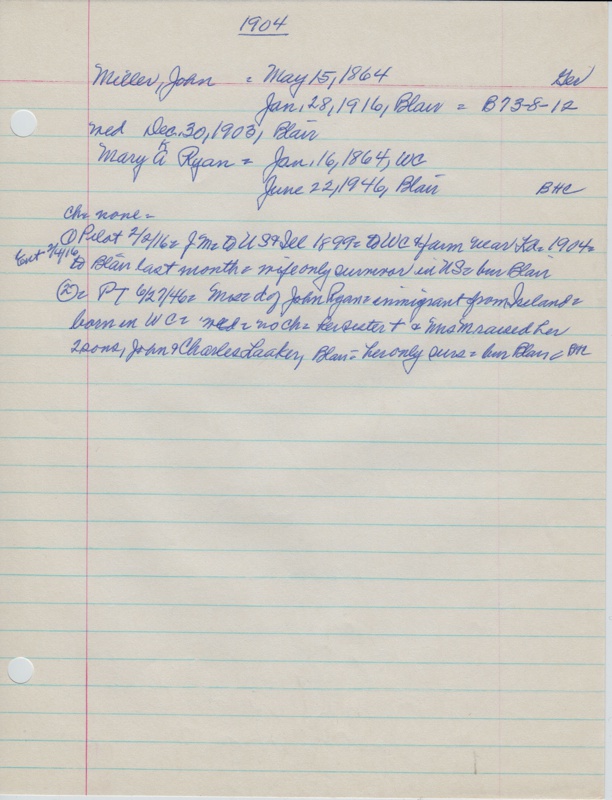 1904
Miller, John = May 15, 1864 Ger
Jan. 28, 1916, Blair = B73-8-12
med Dec. 30, 1903, Blair
Mary A Ryan = Jan. 16, 1864, WC
June 22, 1946, Blair BHC
ch = none =
① Pilot 2/2/16 = J M = to US & Ill 1899 = to WC & farm near Ka = 1904 =
Ent 2/4/16 to Blair last month = wife only survivor in US = bur Blair
② = PT 6/27/46 = Mrs = d of John Ryan = immigrant from Ireland =
born in WC = med = no ch = her sister + & Mrs M raised her
2 sons, John & Charles Laaker, Blair = her only surs = bur Blair C